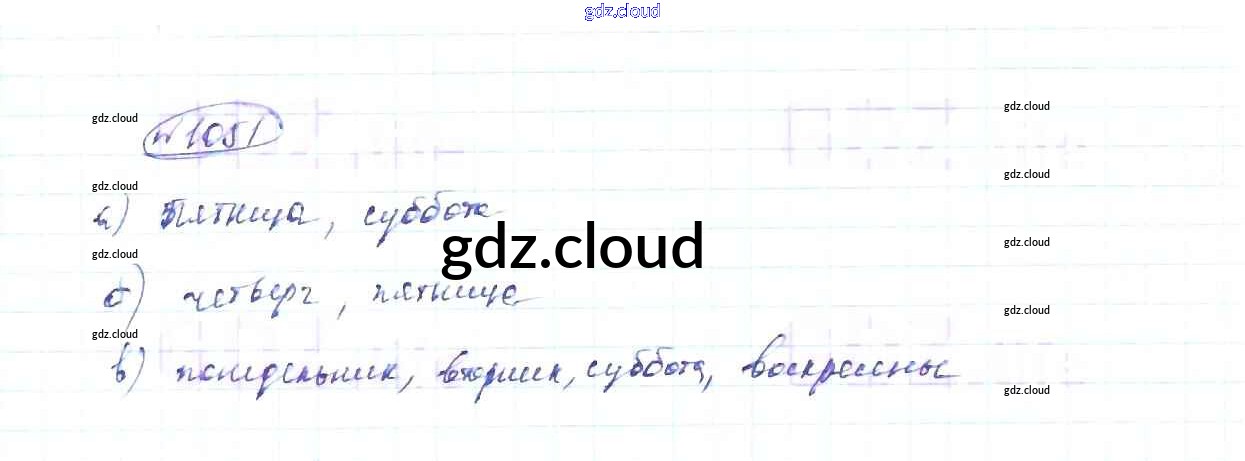 gdz.cloud
gdz.cloud
gdz.cloud
№ 1051
gdz.cloud
gdz.cloud
а) Пятница, суббота
gdz.cloud
gdz.cloud
gdz.cloud
б) четверг, пятница
gdz.cloud
gdz.cloud
в) понидельник, вторник, суббота, воскресены
gdz.cloud